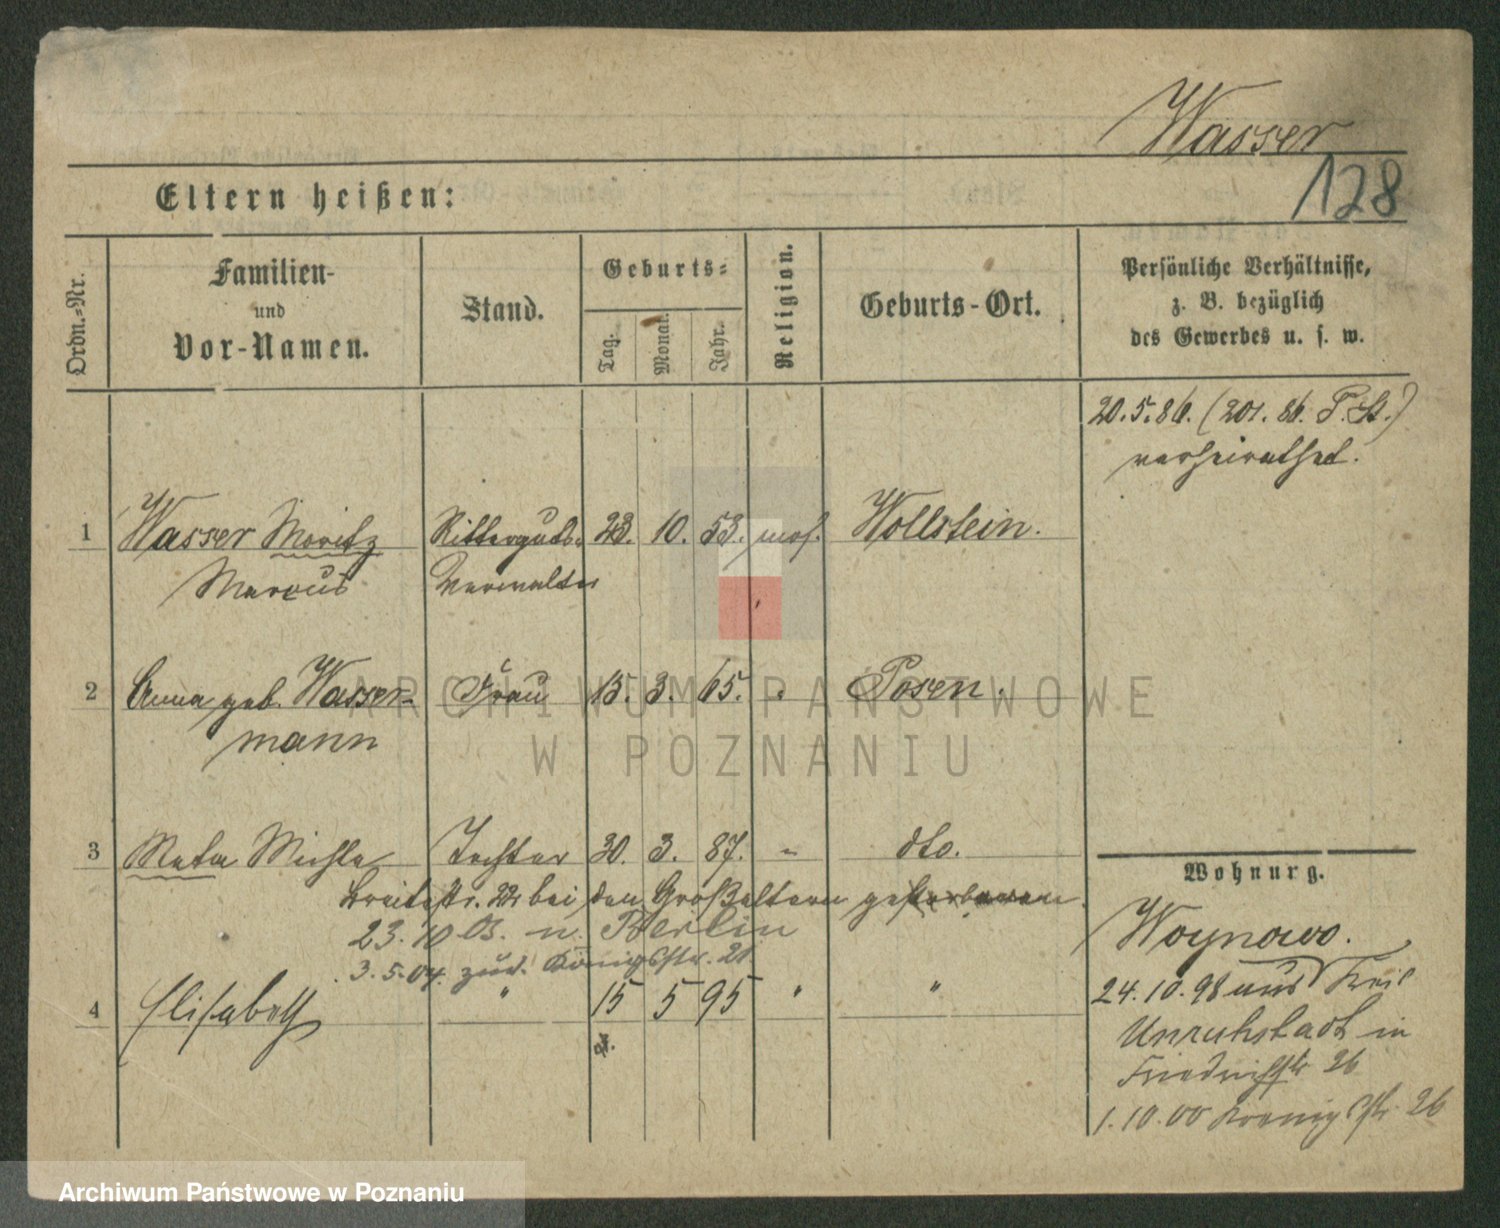 Wasser
128
Eltern heißen:
Ordn.-Nr.
Familien-
und
Vor-Namen.
Stand.
Geburts-
Tag.
Monat.
Jahr.
Religion.
Geburts-Ort.
Persönliche Verhältnisse,
z. B. bezüglich
des Gewerbes u. s. w.
20.5.86. (201. 86. P. St.)
verheirathet.
1 Wasser Moritz Ritterguts- 23. 10. 53. mos. Wollstein.
Marcus Verwalter
2 Anna geb. Wasser- Frau 15. 3. 65. " Posen.
mann
3 Meta Michle Tochter 30. 3. 87. " dto.
Breitestr. 22 bei den Großeltern
23. 10 03. n. Berlin
3. 5. 04. zur. Königstr. 21
4 Elisabeth " 15 5 95 " "
Wohnung.
Woynowo.
24. 10. 98 aus
Unruhstadt in
Friedrichstr 26
1. 10. 00 Koenigstr. 26
ARCHIWUM PAŃSTWOWE
W POZNANIU
Archiwum Państwowe w Poznaniu